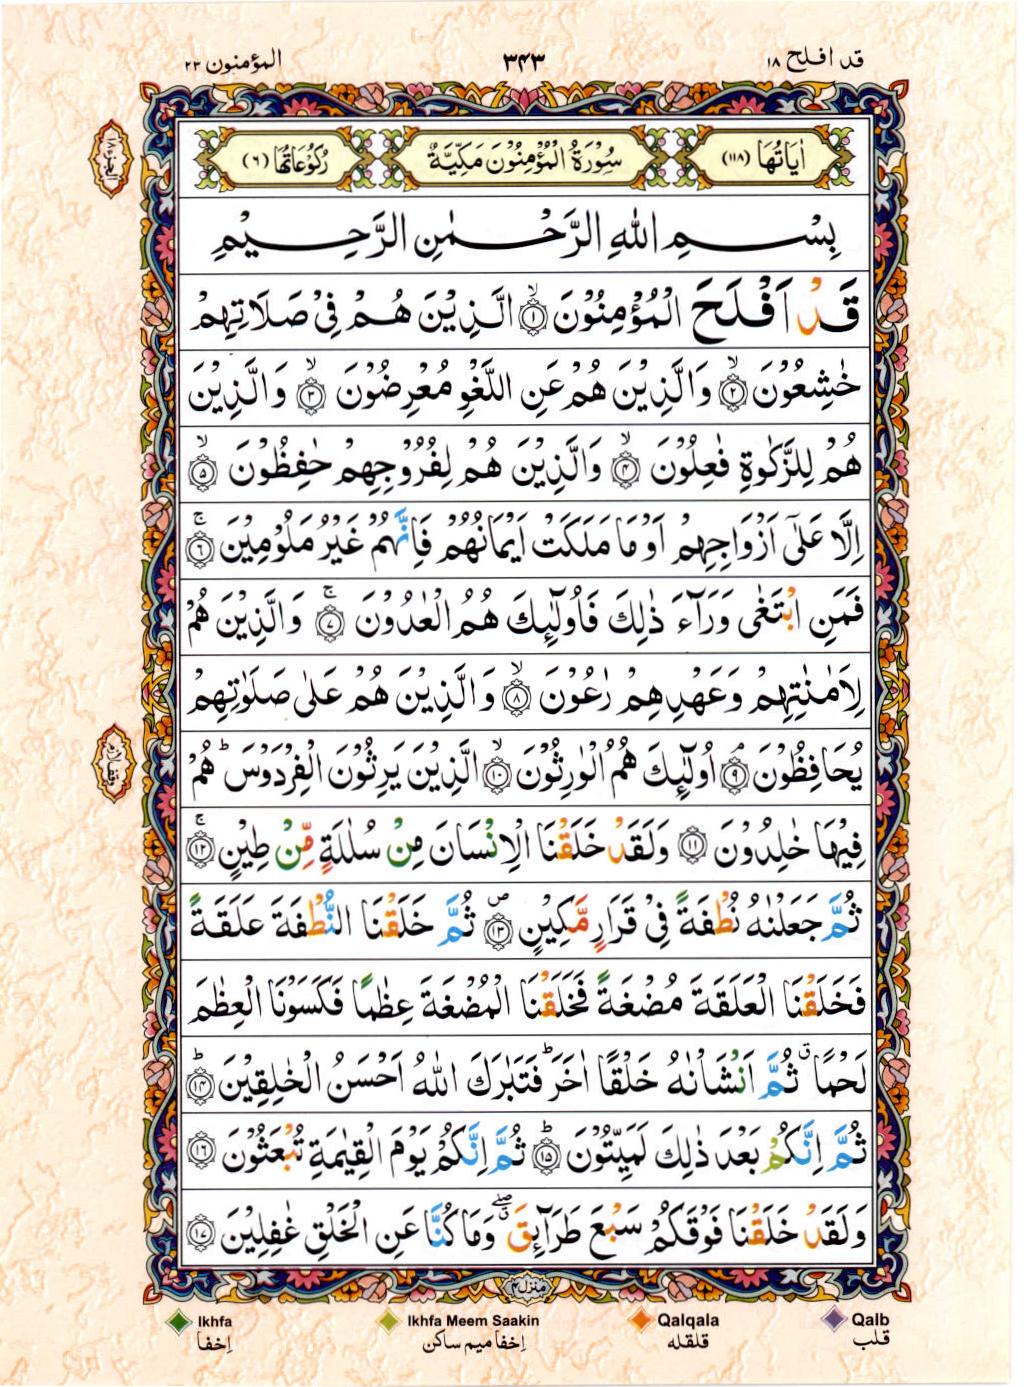 قد افلح ۱۸ ۳۴۳ المؤمنون ۲۳
اٰیَاتُهَا (۱۱۸) سُوْرَةُ الْمُؤْمِنُوْنَ مَكِّيَّةٌ رُكُوْعَاتُهَا (۶)
بِسْمِ اللهِ الرَّحْمٰنِ الرَّحِيْمِ
قَدْ اَفْلَحَ الْمُؤْمِنُوْنَ ۙ﴿۱﴾ الَّذِيْنَ هُمْ فِيْ صَلَاتِهِمْ
خٰشِعُوْنَ ۙ﴿۲﴾ وَالَّذِيْنَ هُمْ عَنِ اللَّغْوِ مُعْرِضُوْنَ ۙ﴿۳﴾ وَالَّذِيْنَ
هُمْ لِلزَّكٰوةِ فٰعِلُوْنَ ۙ﴿۴﴾ وَالَّذِيْنَ هُمْ لِفُرُوْجِهِمْ حٰفِظُوْنَ ۙ﴿۵﴾
اِلَّا عَلٰٓى اَزْوَاجِهِمْ اَوْ مَا مَلَكَتْ اَيْمَانُهُمْ فَاِنَّهُمْ غَيْرُ مَلُوْمِيْنَ ۚ﴿۶﴾
فَمَنِ ابْتَغٰى وَرَآءَ ذٰلِكَ فَاُولٰٓئِكَ هُمُ الْعٰدُوْنَ ۚ﴿۷﴾ وَالَّذِيْنَ هُمْ
لِاَمٰنٰتِهِمْ وَعَهْدِهِمْ رٰعُوْنَ ۙ﴿۸﴾ وَالَّذِيْنَ هُمْ عَلٰى صَلَوٰتِهِمْ
يُحَافِظُوْنَ ۘ﴿۹﴾ اُولٰٓئِكَ هُمُ الْوٰرِثُوْنَ ۙ﴿۱۰﴾ الَّذِيْنَ يَرِثُوْنَ الْفِرْدَوْسَ ؕ هُمْ
فِيْهَا خٰلِدُوْنَ ﴿۱۱﴾ وَلَقَدْ خَلَقْنَا الْاِنْسَانَ مِنْ سُلٰلَةٍ مِّنْ طِيْنٍ ۚ﴿۱۲﴾
ثُمَّ جَعَلْنٰهُ نُطْفَةً فِيْ قَرَارٍ مَّكِيْنٍ ۪﴿۱۳﴾ ثُمَّ خَلَقْنَا النُّطْفَةَ عَلَقَةً
فَخَلَقْنَا الْعَلَقَةَ مُضْغَةً فَخَلَقْنَا الْمُضْغَةَ عِظٰمًا فَكَسَوْنَا الْعِظٰمَ
لَحْمًا ۗ ثُمَّ اَنْشَاْنٰهُ خَلْقًا اٰخَرَ ؕ فَتَبٰرَكَ اللهُ اَحْسَنُ الْخٰلِقِيْنَ ؕ﴿۱۴﴾
ثُمَّ اِنَّكُمْ بَعْدَ ذٰلِكَ لَمَيِّتُوْنَ ؕ﴿۱۵﴾ ثُمَّ اِنَّكُمْ يَوْمَ الْقِيٰمَةِ تُبْعَثُوْنَ ﴿۱۶﴾
وَلَقَدْ خَلَقْنَا فَوْقَكُمْ سَبْعَ طَرَآئِقَ ۖ وَمَا كُنَّا عَنِ الْخَلْقِ غٰفِلِيْنَ ﴿۱۷﴾
الجزء ۱۸
وقف لازم
منزل ۴
Ikhfa Ikhfa Meem Saakin Qalqala Qalb
اِخفا اِخفا میم ساکن قلقله قلب